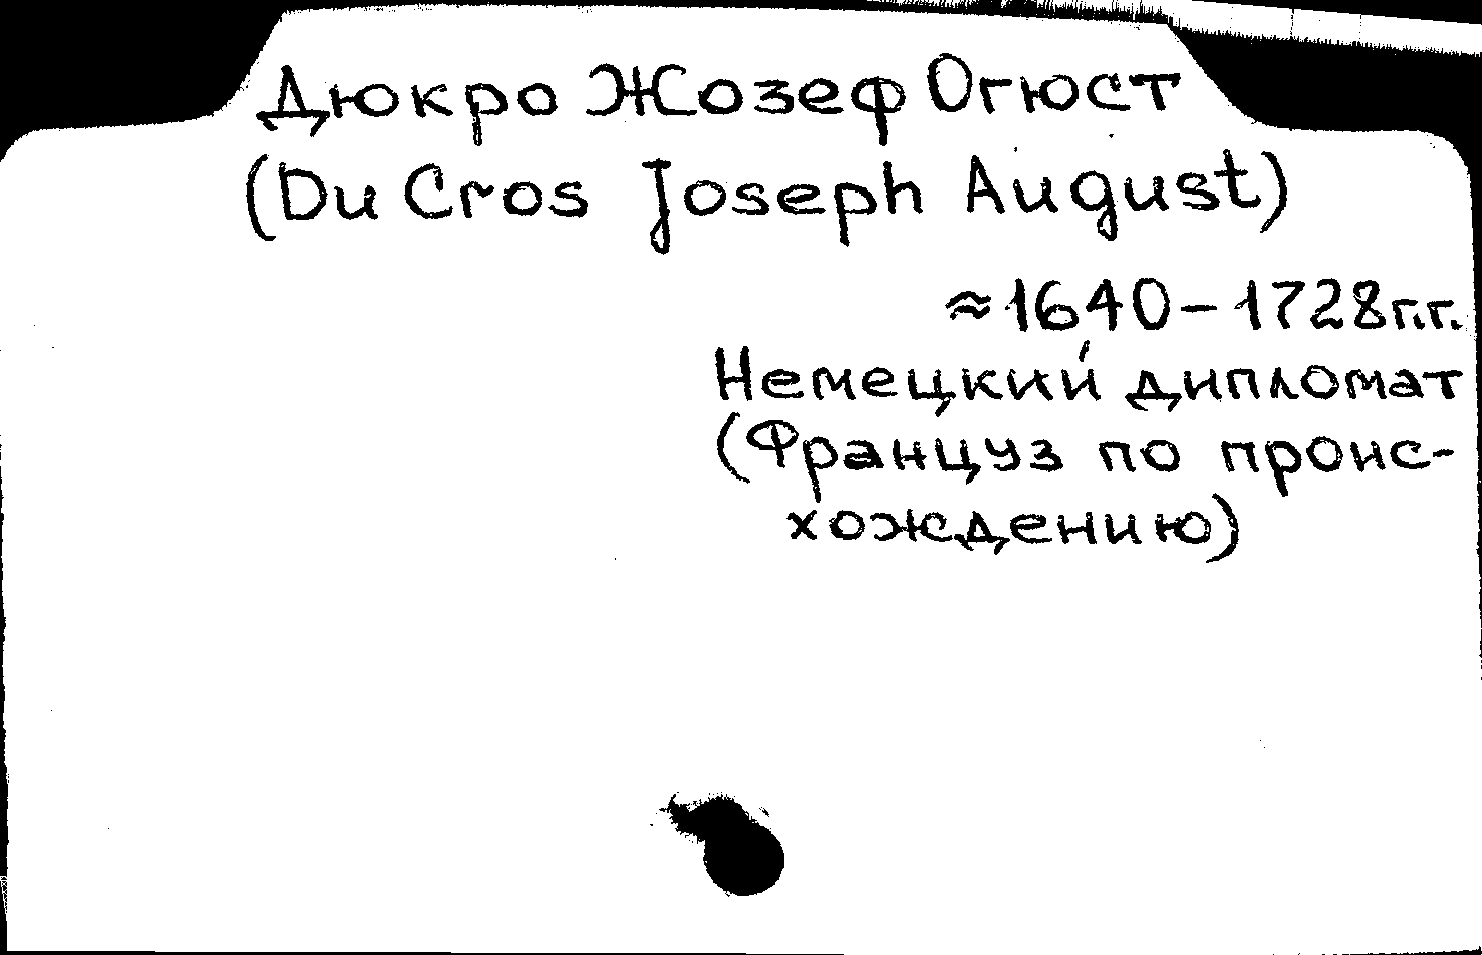 Дюкро Жозеф Огюст
(Du Cros Joseph August)
≈1640-1728г.г.
Немецкий дипломат
(Француз по проис-
хождению)